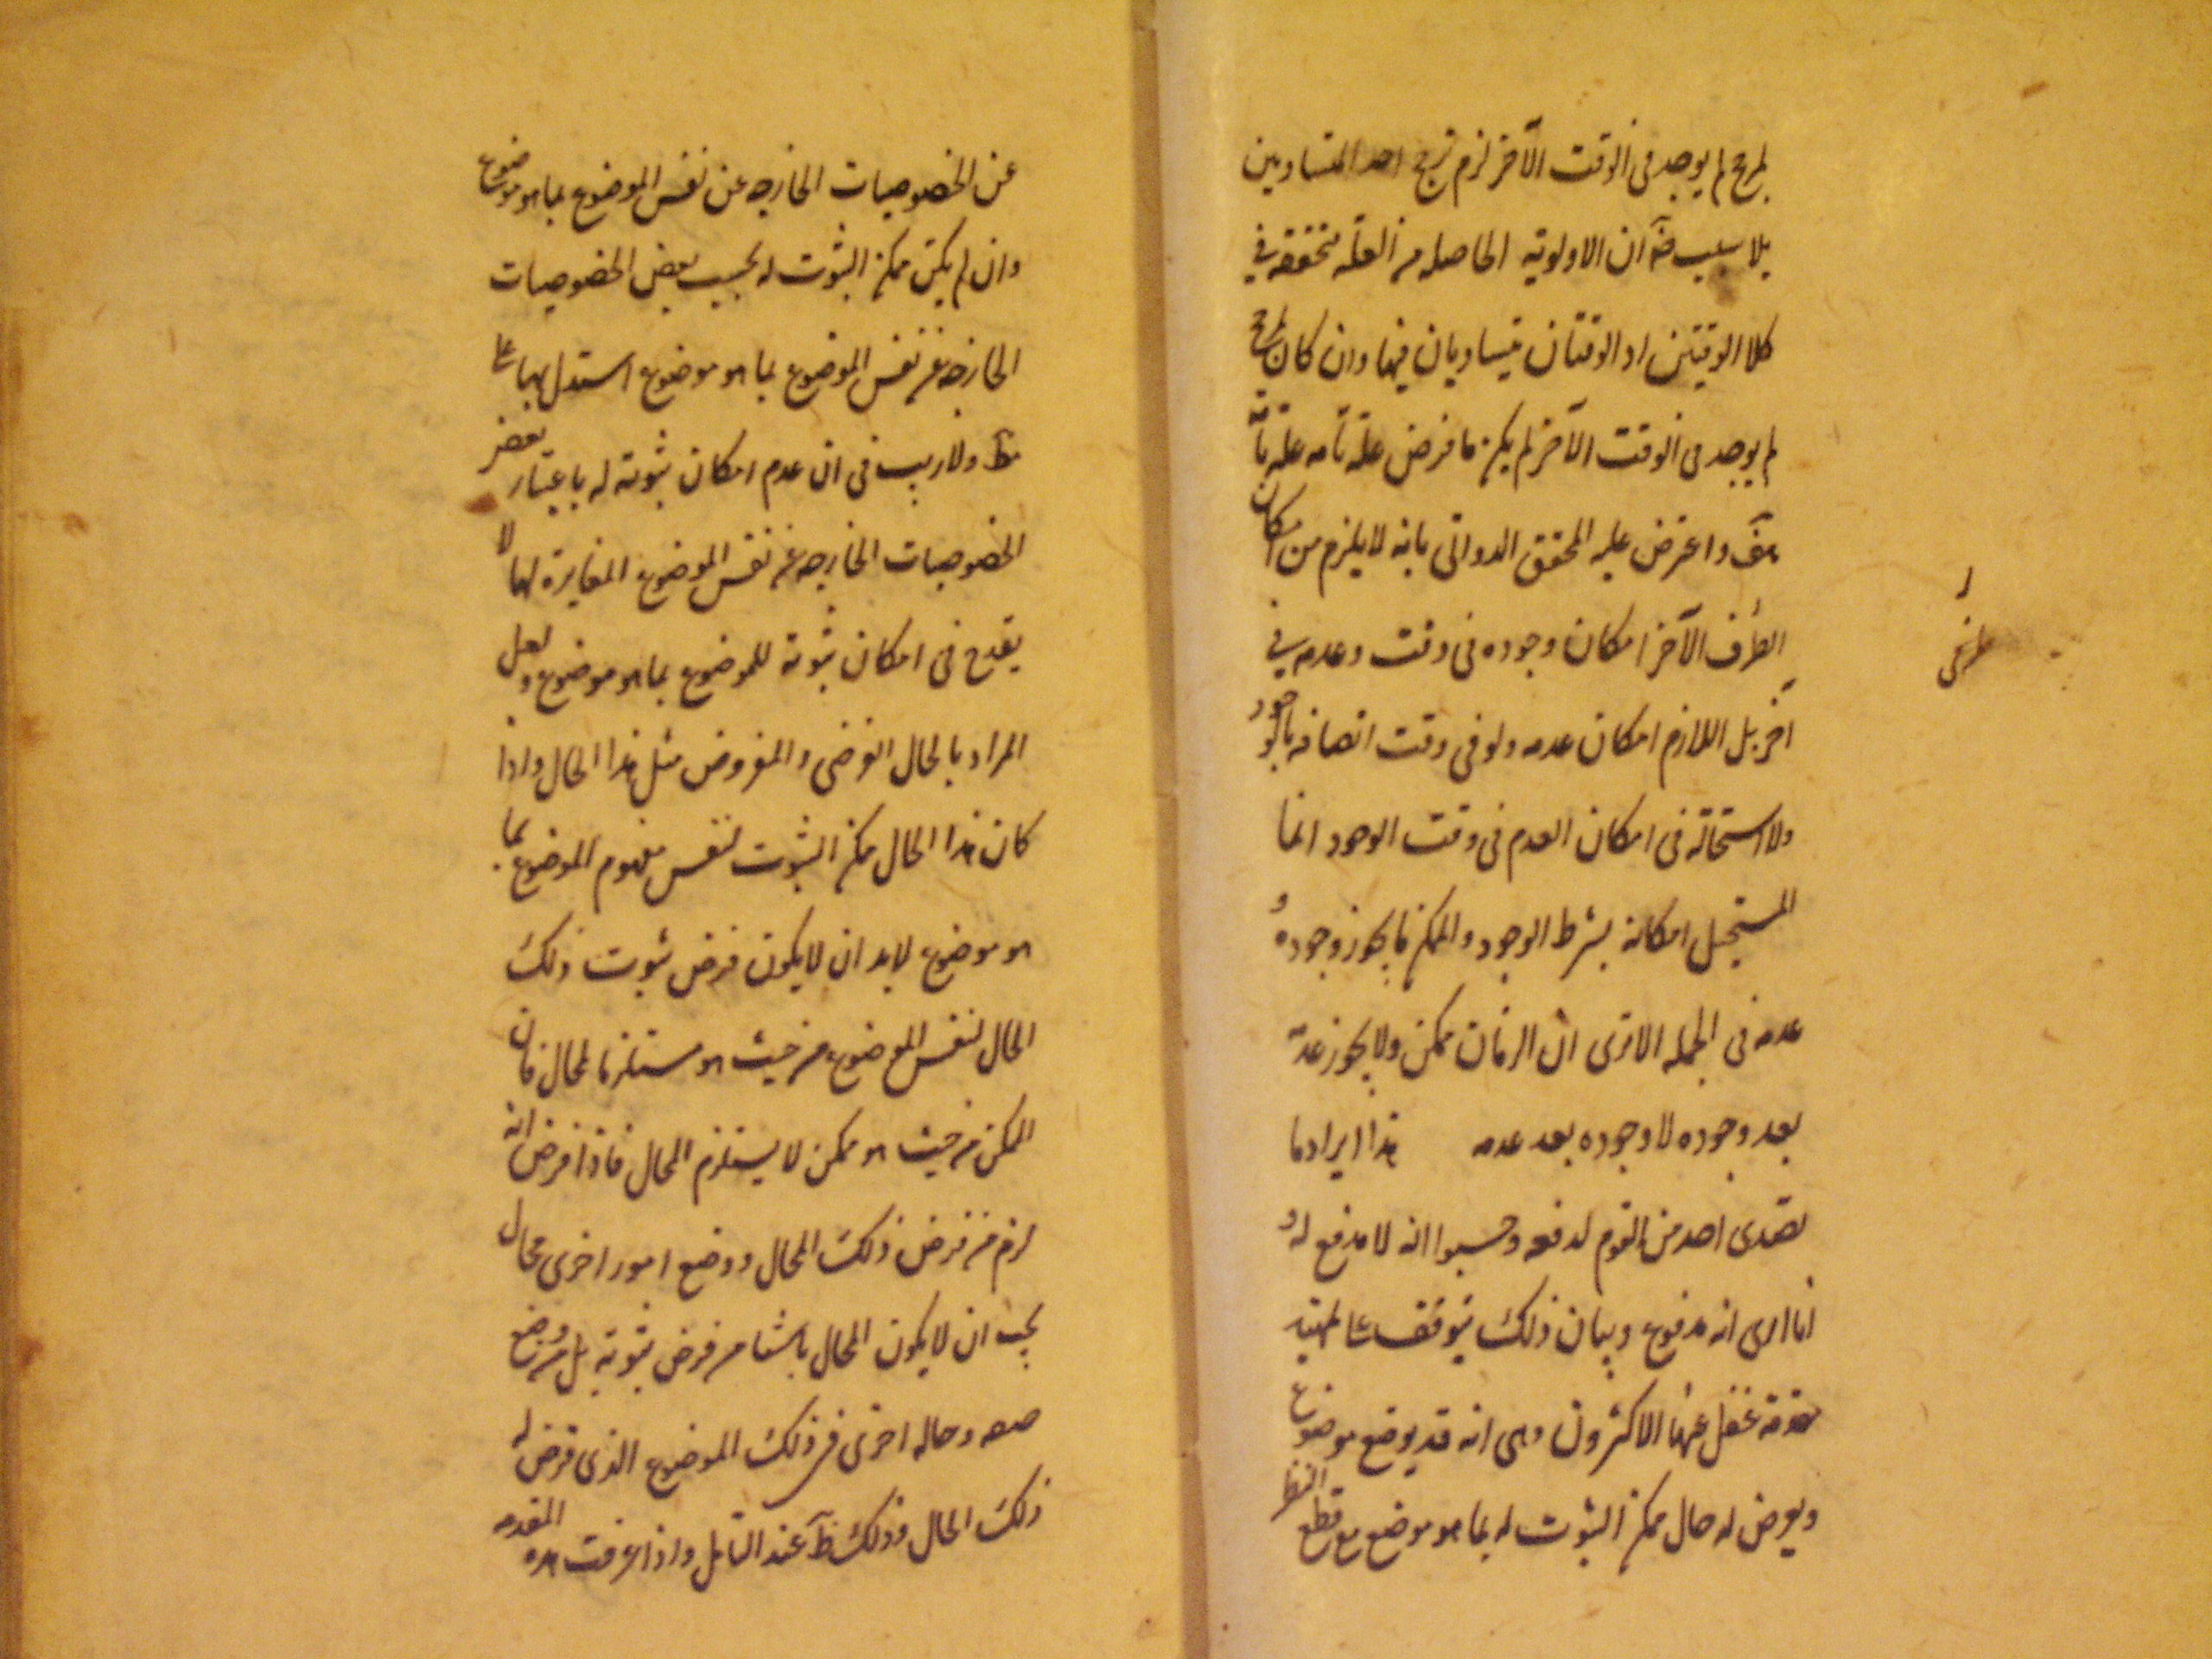 لمرجح لم يوجد فى الوقت الآخر لزم ترجح احد المتساويين
بلا سبب ضرورة ان الاولويه الحاصله من العلة متحققه فى
كلا الوقتين اذ الوقتان متساويان فيها وان كان لمرجح
لم يوجد فى الوقت الآخر لم يكن ما فرض علة تامه علة تامة
هف واعترض عليه المحقق الدوانى بانه لا يلزم من امكان
الطرف الآخر امكان وجوده فى وقت وعدمه فى
آخر بل اللازم امكان عدمه ولو فى وقت اتصافه بالوجود
ولا استحالة فى امكان العدم فى وقت الوجود انما
المستحيل امكانه بشرط الوجود والممكن ما يجوز وجوده و
عدمه فى الجمله الا ترى ان الزمان ممكن ولا يجوز عدمه
بعد وجوده لا وجوده بعد عدمه هذا ايراد ما
تصدى احد من القوم لدفعه وحسبوا انه لا مدفع له و
انا ارى انه مدفوع وبيان ذلك يتوقف على تمهيد
مقدمة غفل عنها الاكثرون وهى انه قد يوضع موضوع
ويفرض له حال ممكن الثبوت له بما هو موضوع مع قطع النظر
عن الخصوصيات الخارجه عن نفس الموضوع بما هو موضوع
وان لم يكن ممكن الثبوت له بحسب بعض الخصوصيات
الخارجه عن نفس الموضوع بما هو موضوع استدل بها على
مط ولا ريب فى ان عدم امكان ثبوته له باعتبار بعض
الخصوصيات الخارجه عن نفس الموضوع المغايرة لها لا
يقدح فى امكان ثبوته للموضوع بما هو موضوع ولعل
المراد بالحال الفرضى والمفروض مثل هذا الحال واذا
كان هذا الحال ممكن الثبوت لنفس مفهوم الموضوع بما
هو موضوع لابد ان لا يكون فرض ثبوت ذلك
الحال لنفس الموضوع من حيث هو مستلزما لمحال فان
الممكن من حيث هو ممكن لا يستلزم المحال فاذا فرض انه
لزم من فرض ذلك الحال ووضع امور اخرى محال
يجب ان لا يكون المحال ناشئا من فرض ثبوته بل من وضع
صفه وحاله اخرى فى ذلك الموضوع الذى فرض له
ذلك الحال وذلك ظ عند التامل واذا عرفت هذه المقدمه